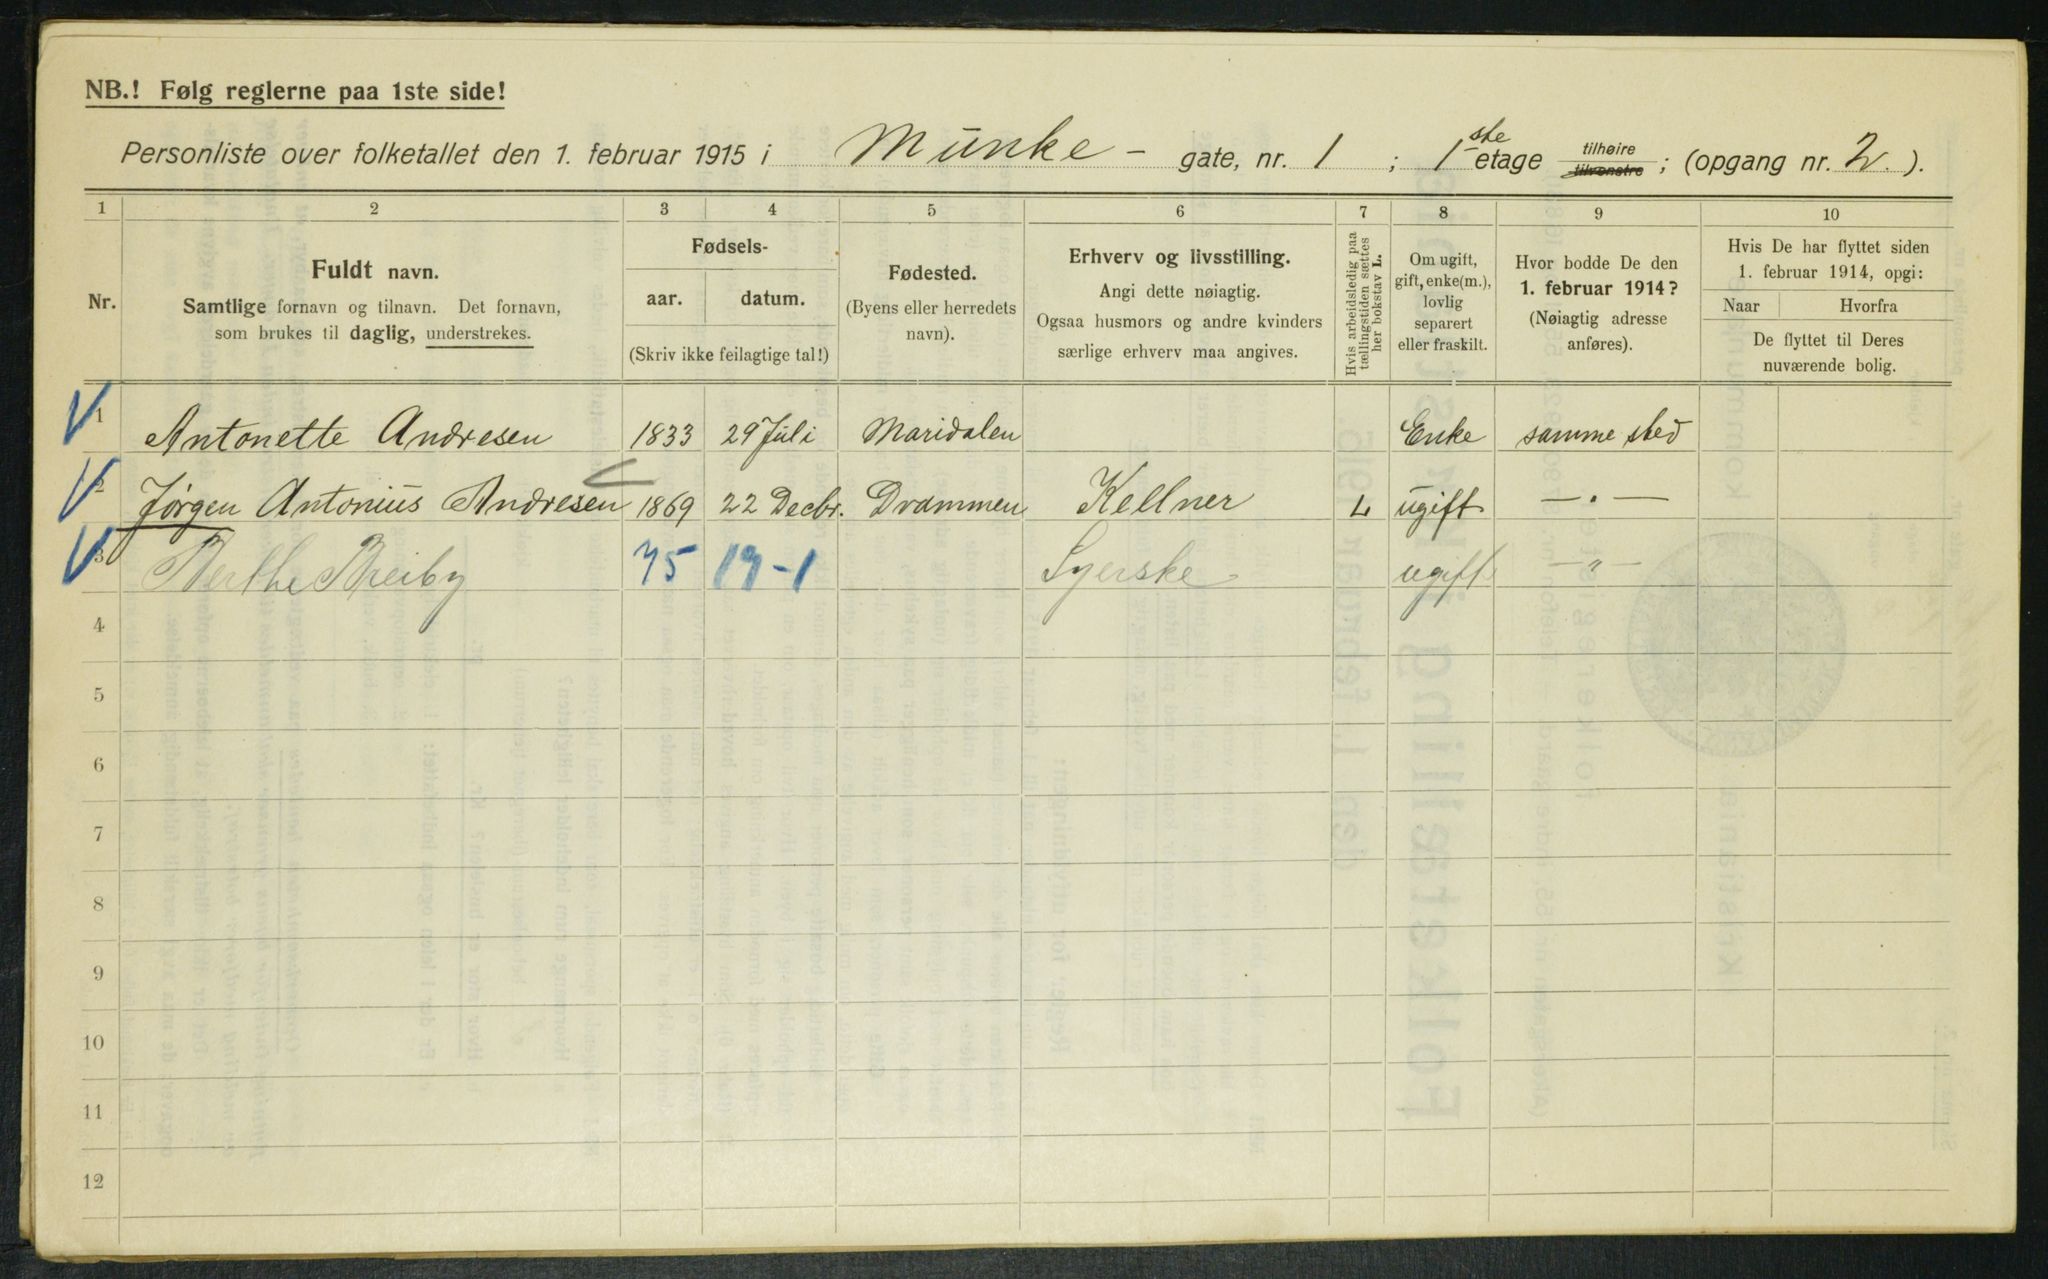 NB.! Følg reglerne paa 1ste side!
Personliste over folketallet den 1. februar 1915 i Munke- gate, nr. 1 ; 1ste etage tilhøire tilvenstre ; (opgang nr. 2.).
1 2 3 4 5 6 7 8 9 10
Nr.
Fuldt navn.
Samtlige fornavn og tilnavn. Det fornavn,
som brukes til daglig, understrekes.
Fødsels-
aar. datum.
(Skriv ikke feilagtige tal!)
Fødested.
(Byens eller herredets
navn).
Erhverv og livsstilling.
Angi dette nøiagtig.
Ogsaa husmors og andre kvinders
særlige erhverv maa angives.
Hvis arbeidsledig paa
tællingstiden sættes
her bokstav L.
Om ugift,
gift, enke(m.),
lovlig
separert
eller fraskilt.
Hvor bodde De den
1. februar 1914?
(Nøiagtig adresse
anføres).
Hvis De har flyttet siden
1. februar 1914, opgi:
Naar Hvorfra
De flyttet til Deres
nuværende bolig.
1 Antonette Andresen 1833 29 Juli Maridalen Enke samme sted
2 Jørgen Antonius Andresen 1869 22 Decbr. Drammen Kellner L ugift — " —
3 Berthe Breiby 75 19-1 Syerske ugift — " —
4
5
6
7
8
9
10
11
12